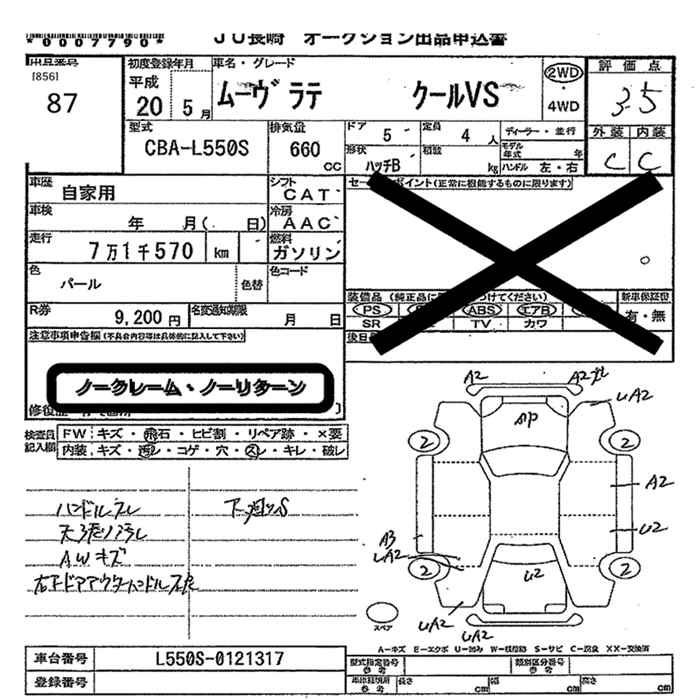 *0007790*
JU長崎 オークション出品申込書
[856]
87
初度登録年月
平成
20 5月
車名・グレード
ムーヴ ラテ クールVS
2WD
・
4WD
評価点
3.5
外装 内装
C C
型式
CBA-L550S
排気量
660
CC
ドア 5
定員 4人
ディーラー・並行
形状
ハッチB
積載 kg
モデル年式 年
ハンドル 左・右
車歴
自家用
シフト
CAT
車検
年 月( 日)
冷房
AAC
走行
7万1千570 km
燃料
ガソリン
色
パール
色替
色コード
R券
9,200円
名変通知期限
月 日
ポイント(正常に機能するものに限ります)
装備品
PS ABS エアB
SR TV カワ
新車保証書
有・無
注意事項申告欄(不具合内容等は具体的に記入して下さい)
ノークレーム・ノーリターン
検査員
記入欄
FW キズ・飛石・ヒビ割・リペア跡・×要
内装 キズ・汚レ・コゲ・穴・スレ・キレ・破レ
ハンドルスレ
天張リ汚レ
AWキズ
A2
A2
UA2
AP
2
2
A2
U2
A3
UA2
2
2
U2
UA2
UA2
スペア
A-キズ E-エクボ U-凹み W-板修跡 S-サビ C-腐食 XX-交換済
車台番号
L550S-0121317
登録番号
型式指定番号
参考
類別区分番号
参考
長さ cm
幅 cm
高さ cm